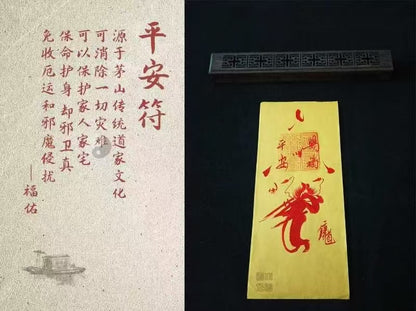 平安符
源于茅山传统道家文化
可消除一切灾难
可以保护家人家宅
保命护身 却邪卫真
免收厄运和邪魔侵扰
——福佑
平安